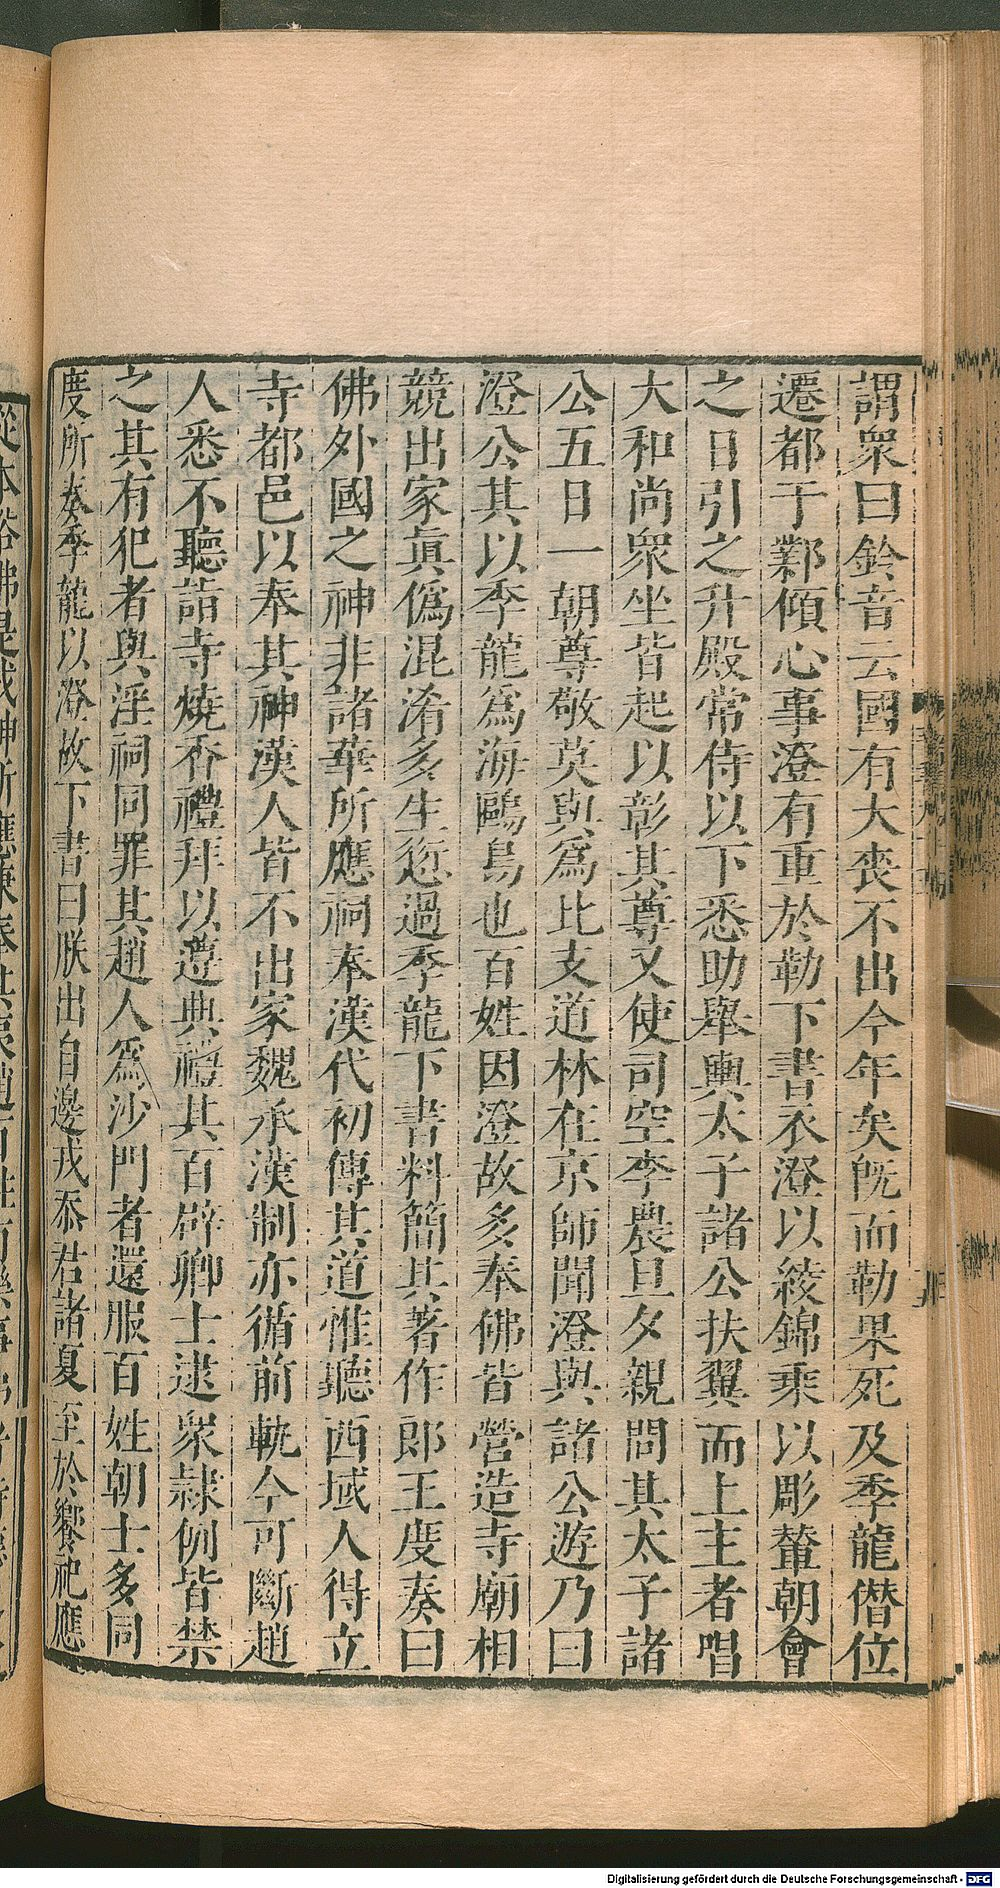 謂衆曰鈴音云國有大喪不出今年矣旣而勒果死及季龍僭位
遷都于鄴傾心事澄有重於勒下書衣澄以綾錦乘以彫輦朝會
之日引之升殿常侍以下悉助舉輿太子諸公扶翼而上主者唱
大和尚衆坐皆起以彰其尊又使司空李農旦夕親問其太子諸
公五日一朝尊敬莫與爲比支道林在京師聞澄與諸公遊乃曰
澄公其以季龍爲海鷗鳥也百姓因澄故多奉佛皆營造寺廟相
競出家眞僞混淆多生愆過季龍下書料簡其著作郎王度奏曰
佛外國之神非諸華所應祠奉漢代初傳其道惟聽西域人得立
寺都邑以奉其神漢人皆不出家魏承漢制亦循前軌今可斷趙
人悉不聽詣寺燒香禮拜以遵典禮其百辟卿士逮衆隷例皆禁
之其有犯者與淫祠同罪其趙人爲沙門者還服百姓朝士多同
度所奏季龍以澄故下書曰朕出自邊戎忝君諸夏至於饗祀應
Digitalisierung gefördert durch die Deutsche Forschungsgemeinschaft - DFG